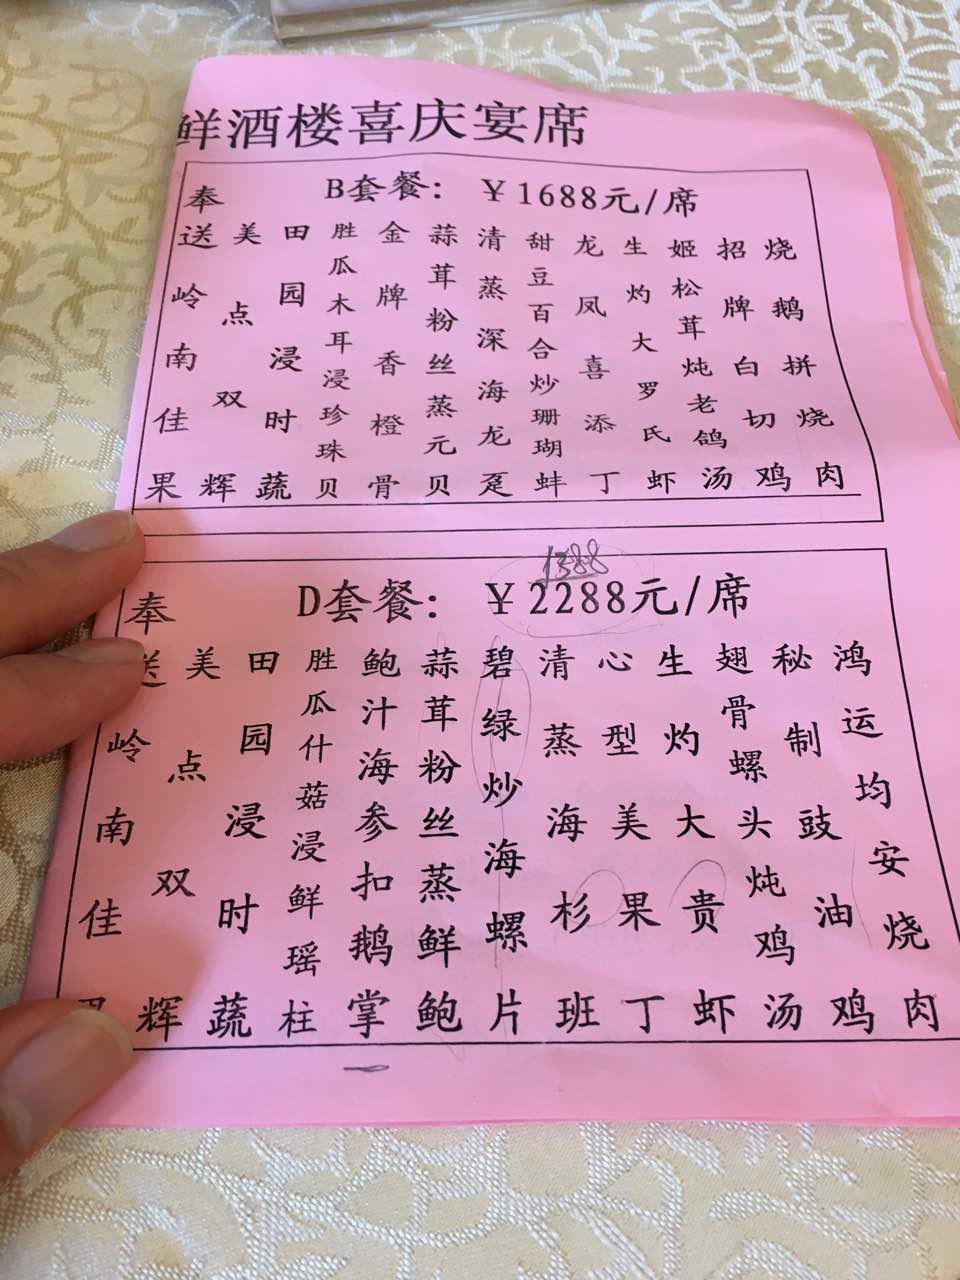 鲜酒楼喜庆宴席
B套餐：￥1688元/席
烧鹅拼烧肉
招牌白切鸡
姬松茸炖老鸽汤
生灼大罗氏虾
龙凤喜添丁
甜豆百合炒珊瑚蚌
清蒸深海龙趸
蒜茸粉丝蒸元贝
金牌香橙骨
胜瓜木耳浸珍珠贝
田园浸时蔬
美点双辉
奉送岭南佳果
1388
D套餐：￥2288元/席
鸿运均安烧肉
秘制豉油鸡
翅骨螺头炖鸡汤
生灼大贵虾
心型美果丁
清蒸海杉班
碧绿炒海螺片
蒜茸粉丝蒸鲜鲍
鲍汁海参扣鹅掌
胜瓜什菇浸鲜瑶柱
田园浸时蔬
美点双辉
奉送岭南佳果